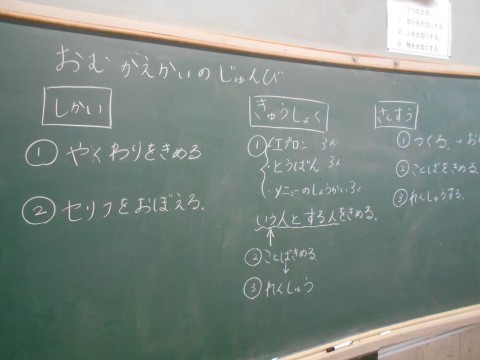 おむかえかいのじゅんび
しかい
① やくわりをきめる
② セリフをおぼえる。
きゅうしょく
① エプロン 3人
とうばん 3人
メニューのしょうかい 3人
いう人とする人をきめる。
② ことばきめる。
③ れんしゅう
さんすう
① つくる。→お
② ことばをきめる。
③ れんしゅうする。